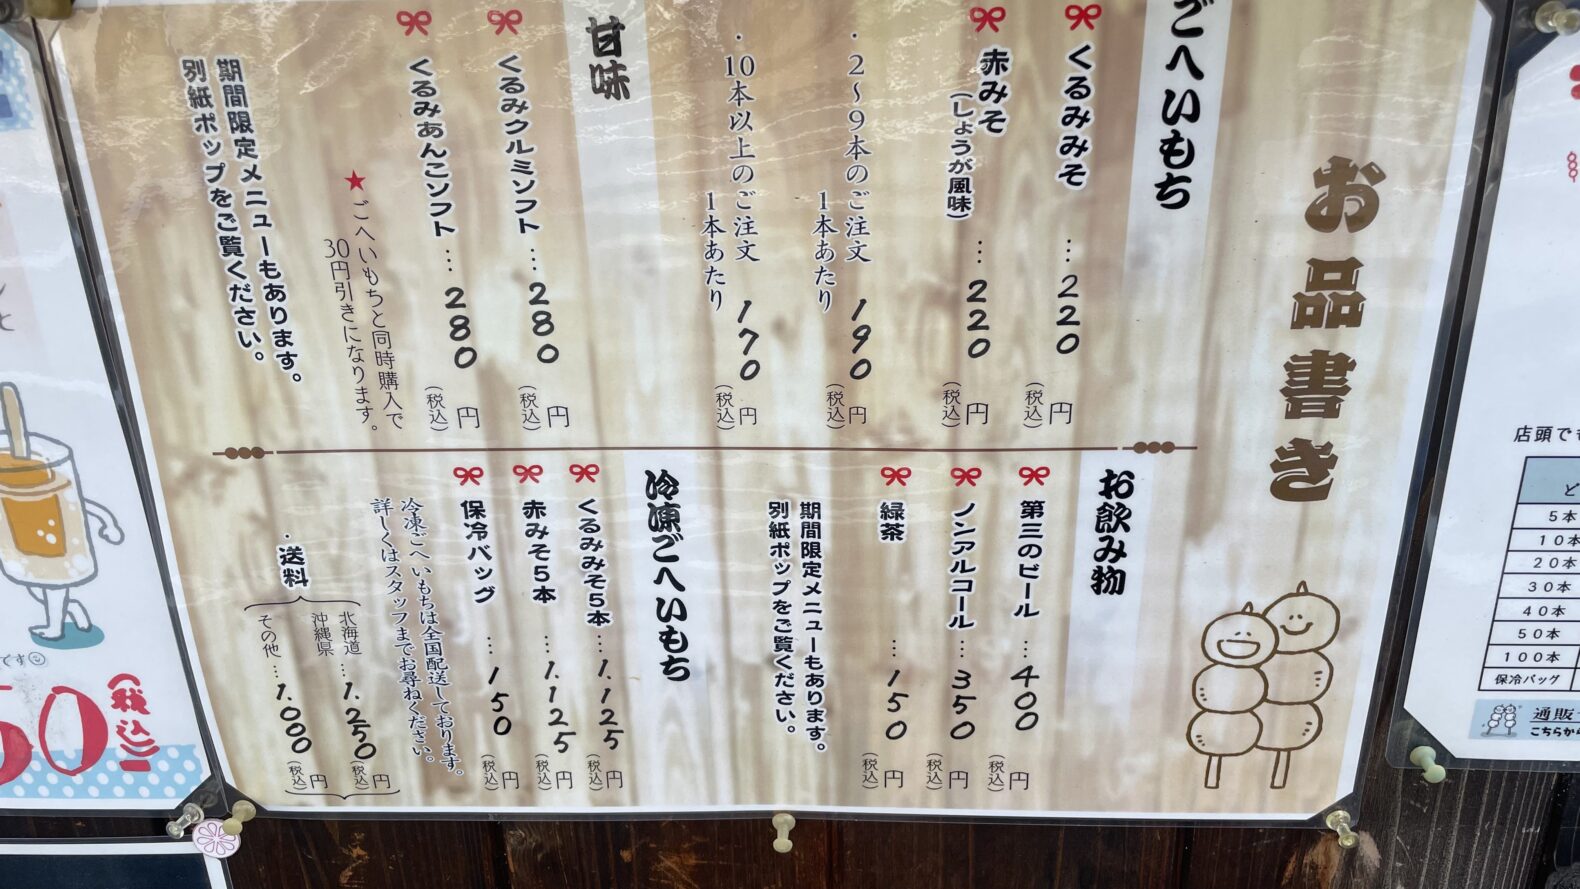 お品書き
ごへいもち
くるみみそ … 220円(税込)
赤みそ(しょうが風味) … 220円(税込)
・2〜9本のご注文
1本あたり 190円(税込)
・10本以上のご注文
1本あたり 170円(税込)
甘味
くるみクルミソフト … 280円(税込)
くるみあんこソフト … 280円(税込)
★ごへいもちと同時購入で
30円引きになります。
期間限定メニューもあります。
別紙ポップをご覧ください。
お飲み物
第三のビール … 400円(税込)
ノンアルコール … 350円(税込)
緑茶 … 150円(税込)
期間限定メニューもあります。
別紙ポップをご覧ください。
冷凍ごへいもち
くるみみそ5本 … 1.125円(税込)
赤みそ5本 … 1.125円(税込)
保冷バッグ … 150円(税込)
冷凍ごへいもちは全国配送しております。
詳しくはスタッフまでお尋ねください。
・送料
北海道
沖縄県 … 1.250円(税込)
その他 … 1.000円(税込)
店頭でも
5本
10本
20本
30本
40本
50本
100本
保冷バッグ
通販
こちらから
です
50
(税込)